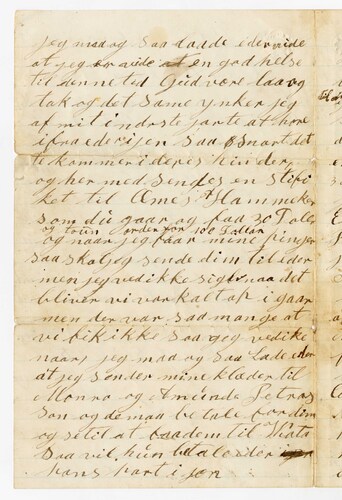 jeg maa og saa laade eder vide
at jeg er vide at en god helse
til denne ted Gud være laavog
tak og det same ynker jeg
af mit inderste jarte at høre
ifra eder igen saa snart det
te kommer i deres hender
og her med sendes en
ket til Ames, Hammeker
som du gaar og faa 30 Taller
og toun order for 100 Dallar
og naar jeg faar mine pinger
saa skal jeg sende dim til eder
men jeg ved ikke siger naa det
bliver vi var kalt op i gaar
men der var saa mange at
vi fik ikke saa jeg ved ike
naar, jeg maa og saa Lade eder
at jeg sender mine klæder til
Monro og Petras
son og de maa betale for dem
og se til at faa dem til
saa vil hun betale eder
hans part igen